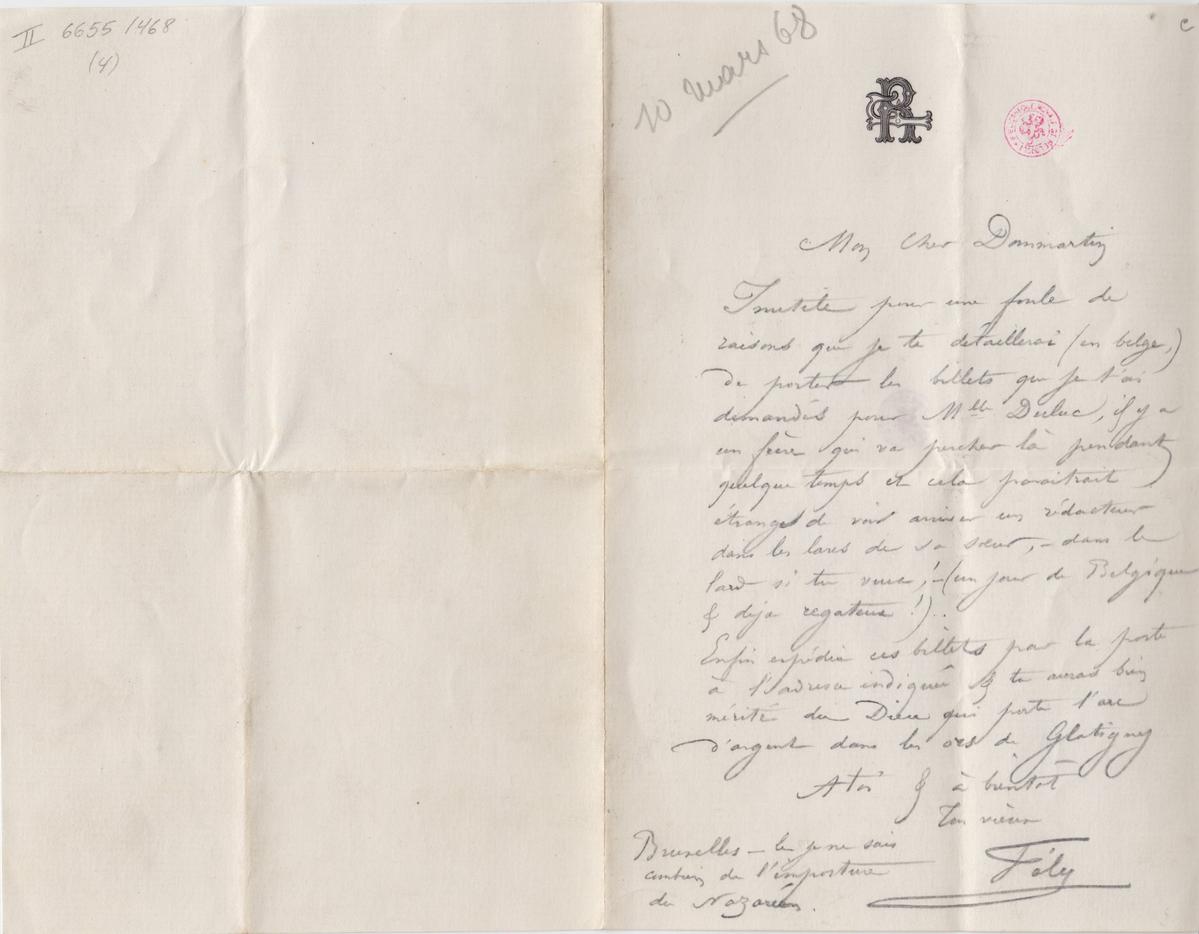 II 6655 /468
(4)
10 mars 68
R
c
Mon Cher Dommartin
Inutile pour une foule de
raisons que je te détaillerai (en belge,)
de porter les billets que je t'ai
demandés pour Mlle Duluc, il y a
un frère qui va percher là pendant
quelque temps et cela paraitrait
étrange de voir arriver un rédacteur
dans les lares de sa sœur, – dans le
lard si tu veux, ! – (un jour de Belgique
& deja regateux !)..
Enfin expédie ces billets par la poste
à l'adresse indiquée & tu auras bien
mérité du Dieu qui porte l'arc
d'argent dans les ors de Glatigny
A toi & à bientôt
Ton vieux
Fély
Bruxelles – le je ne sais
combien de l'imposture
du Nazaréen.